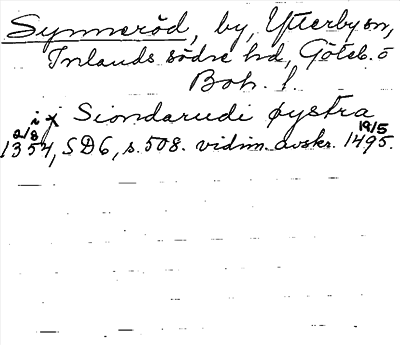 Synneröd, by, Ytterby sn,
Inlands södre hd, Göteb. o
Boh. l.
i x Siondarudi øystra
2/8 1354, SD6, s. 508. vidim. avskr. 19/5 1495.